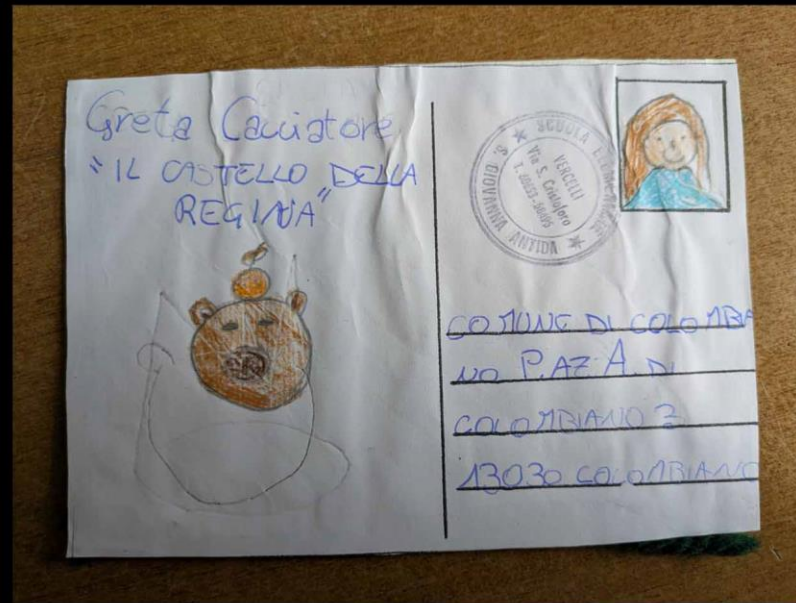 Greta Cacciatore
"IL CASTELLO DELLA
REGINA"
SCUOLA ELEMENTARE
S. GIOVANNA ANTIDA
VERCELLI
Via S. Cristoforo
COMUNE DI COLOMBIA
NO P.AZ A. DI
COLOMBIANO 2
13030 COLOMBIANO